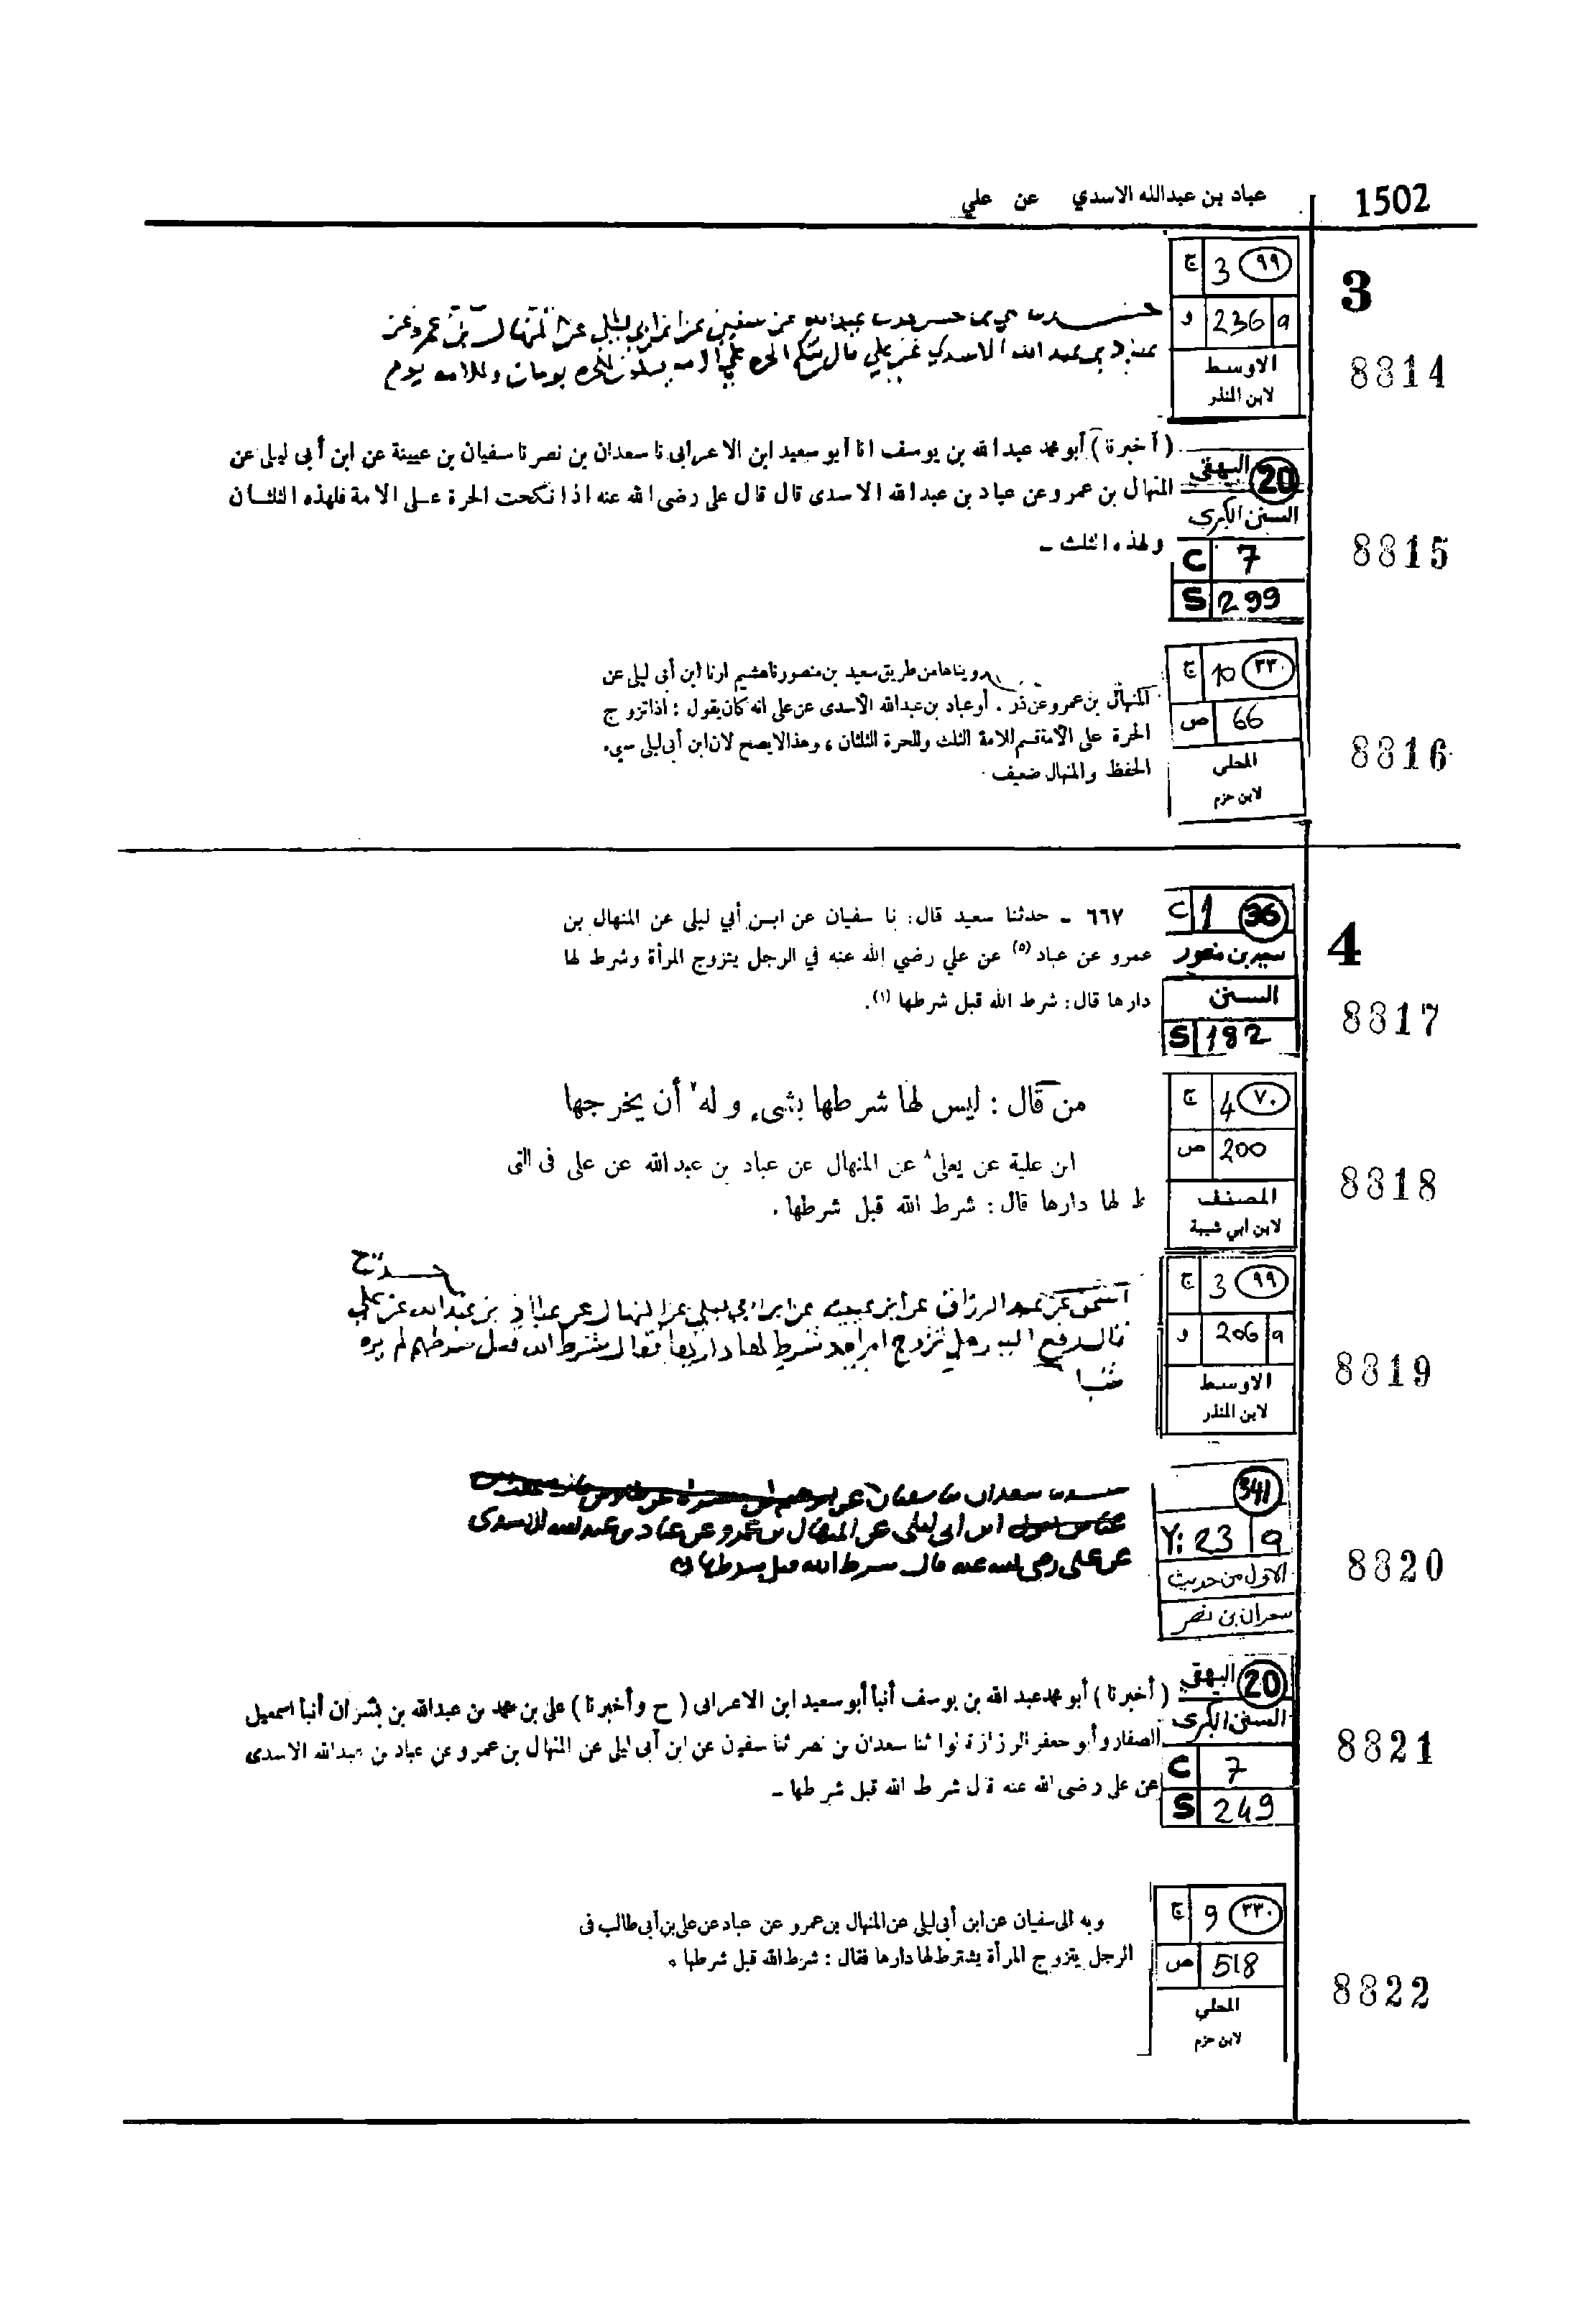 1502
عباد بن عبدالله الاسدي عن علي
3
8814
ج 3 ٩٩
و 236 a
الاوسط
لابن المنذر
عبدالله عن سفين
عبد الله الاسدي عن علي قال تنكح الحره على الامه
يومان وللامه يوم
8815
20 البيهقي
السنن الكبرى
C 7
S 299
( أخبرنا ) أبو محمد عبد الله بن يوسف انا ابو سعيد ابن الاعرابى نا سعدان بن نصر نا سفيان بن عيينة عن ابن أبى ليلى عن
المنهال بن عمرو عن عباد بن عبد الله الاسدى قال قال على رضى الله عنه اذا نكحت الحرة على الامة فلهذه الثلثان
ولهذه الثلث ـ
8816
ج 10 ٣٣٠
ص 66
المحلي
لابن حزم
روينا هامن طريق سعيد بن منصور ناهشيم ارنا ابن أبى ليلى عن
المنهال بن عمرو عن زر . أو عباد بن عبدالله الأسدى عن على انه كان يقول : اذا تزوج
الحرة على الأمة قسم للامة الثلث وللحرة الثلثان ، وهذا لا يصح لان ابن أبى ليلى سيء
الحفظ والمنهال ضعيف
4
8817
C 1 36
سعيد بن منصور
السنن
S 182
٦٦٧ ـ حدثنا سعيد قال: نا سفيان عن ابن أبي ليلى عن المنهال بن
عمرو عن عباد (٥) عن علي رضي الله عنه في الرجل يتزوج المرأة وشرط لها
دارها قال: شرط الله قبل شرطها (١).
8818
ج 4 ٧٠
ص 200
المصنف
لابن ابي شيبة
من قال : ليس لها شرطها بشىء وله ٧ أن يخرجها
ابن علية عن يعلى ٨ عن المنهال عن عباد بن عبد الله عن على فى التى
ط لها دارها قال : شرط الله قبل شرطها .
8819
ج 3 ٩٩
و 206 a
الاوسط
لابن المنذر
اسحق عن عبد الرزاق عن ابن عيينه عن ابن ابي ليلي عن المنهال عن عباد بن عبد الله عن علي
قال رفع اليه رجل تزوج امراه وشرط لها دارها فقال شرط الله قبل شرطهم لم يره
شيا
8820
341
Y: 23 a
الاول من حديث
سعدان بن نصر
حدثنا سعدان نا سفيان عن
ابن ابى ليلى عن المنهال بن عمرو عن عباد بن عبد الله الاسدى
عن على رضى الله عنه قال شرط الله قبل شرطها
8821
20 البيهقي
السنن الكبرى
C 7
S 249
( أخبرنا ) أبو محمد عبد الله بن يوسف أنبأ أبو سعيد ابن الاعرابى ( ح وأخبرنا ) على بن محمد بن عبدالله بن بشران أنبأ اسمعيل
الصفار وأبو جعفر الرزاز قالوا ثنا سعدان بن نصر ثنا سفين عن ابن أبى ليلى عن المنهال بن عمرو عن عباد بن عبدالله الاسدى
عن على رضى الله عنه قال شرط الله قبل شرطها ـ
8822
ج 9 ٣٣٠
ص 518
المحلي
لابن حزم
وبه الى سفيان عن ابن أبى ليلى عن المنهال بن عمرو عن عباد عن على بن أبى طالب فى
الرجل يتزوج المرأة يشترط لها دارها فقال : شرط الله قبل شرطها .